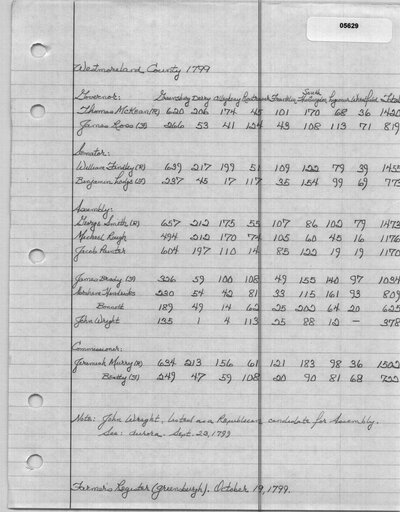 05629
Westmoreland County 1799
South
Governor: Greensburg Derry Allegheny Rostraver Franklin Huntingdon Ligonier Wheatfield Total
Thomas McKean (R) 620 206 174 45 101 170 68 36 1420
James Ross (F) 266 53 41 124 43 108 113 71 819
Senator:
William Findley (R) 639 217 199 51 109 122 79 39 1455
Benjamin Lodge (F) 237 45 17 117 35 154 99 69 773
Assembly:
George Smith (R) 657 212 175 55 107 86 102 79 1473
Michael Rugh 494 212 170 74 105 60 45 16 1176
Jacob Painter 604 197 110 14 85 122 19 19 1170
James Brady (F) 326 59 100 108 49 155 140 97 1034
Abraham Hendricks 230 54 42 81 33 115 161 93 809
Bonnett 189 49 14 62 25 202 64 20 625
John Wright 135 1 4 113 25 88 12 — 378
Commissioner:
Jeremiah Murry (R) 634 213 156 61 121 183 98 36 1502
Beatty (F) 249 47 59 108 20 90 81 68 722
Note: John Wright, listed as a Republican candidate for Assembly.
See: Aurora. Sept. 23, 1799
Farmers Register (Greensburgh). October 19, 1799.